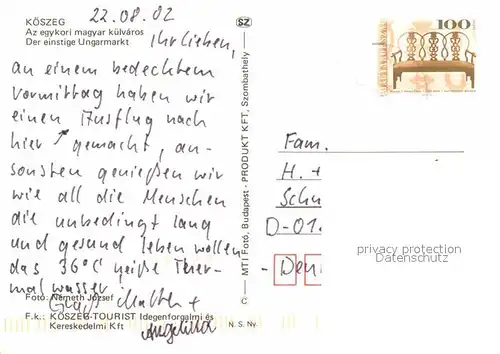 KÖSZEG
Az egykori magyar külváros
Der einstige Ungarmarkt
22.08.02
SZ
100
Ihr Lieben,
an einem bedecktem
Vormittag haben wir
einen Ausflug nach
hier gemacht, an-
sonsten genießen wir
wie all die Menschen
die unbedingt lang
und gesund leben wollen
das 36°C heiße Ther-
malwasser.
Gruß
Angelika
Foto: Németh József
F.k.: KÖSZEG-TOURIST Idegenforgalmi és
Kereskedelmi Kft
N. S. Ny.
C — MTI Fotó, Budapest - PRODUKT KFT, Szombathely —
Fam.
H. +
Schu
D-01
privacy protection
Datenschutz